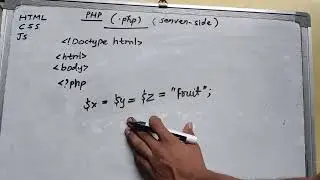 HTML
CSS
JS
PHP (.php) (senven-side)
<!Doctype html>
<html>
<body>
<?php
$x = $y = $z = "fruit";